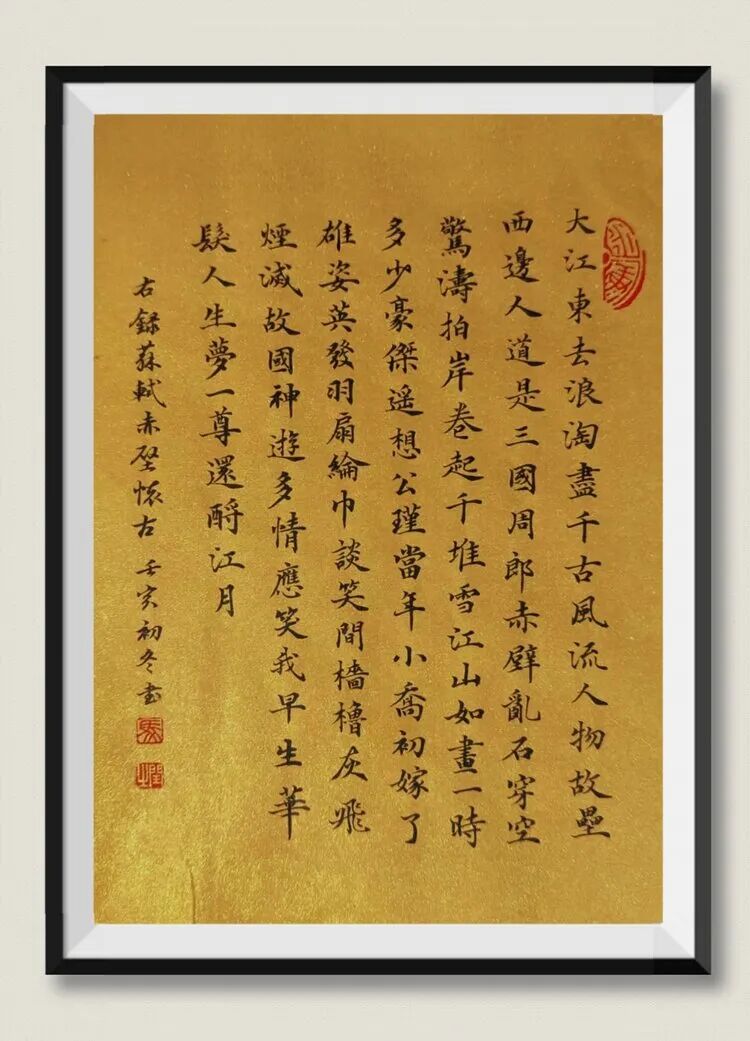 大江東去浪淘盡千古風流人物故壘
西邊人道是三國周郎赤壁亂石穿空
驚濤拍岸卷起千堆雪江山如畫一時
多少豪傑遥想公瑾當年小喬初嫁了
雄姿英發羽扇綸巾談笑間檣櫓灰飛
煙滅故國神遊多情應笑我早生華
髮人生夢一尊還酹江月
右録蘇軾赤壁懷古 壬寅初冬書